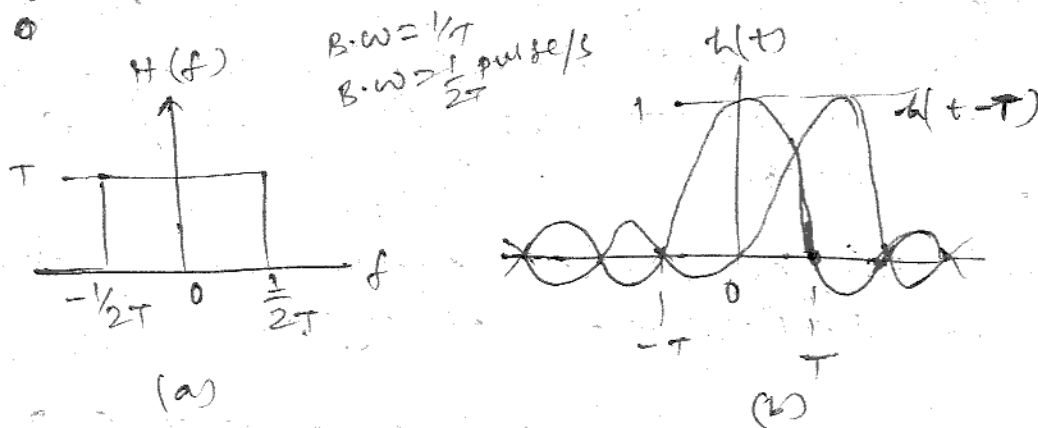 B.W = 1/T
B.W = 1/2T pulse/s
H(f)
T
-1/2T 0 1/2T f
(a)
h(t)
1
h(t-T)
-T 0 T
(b)